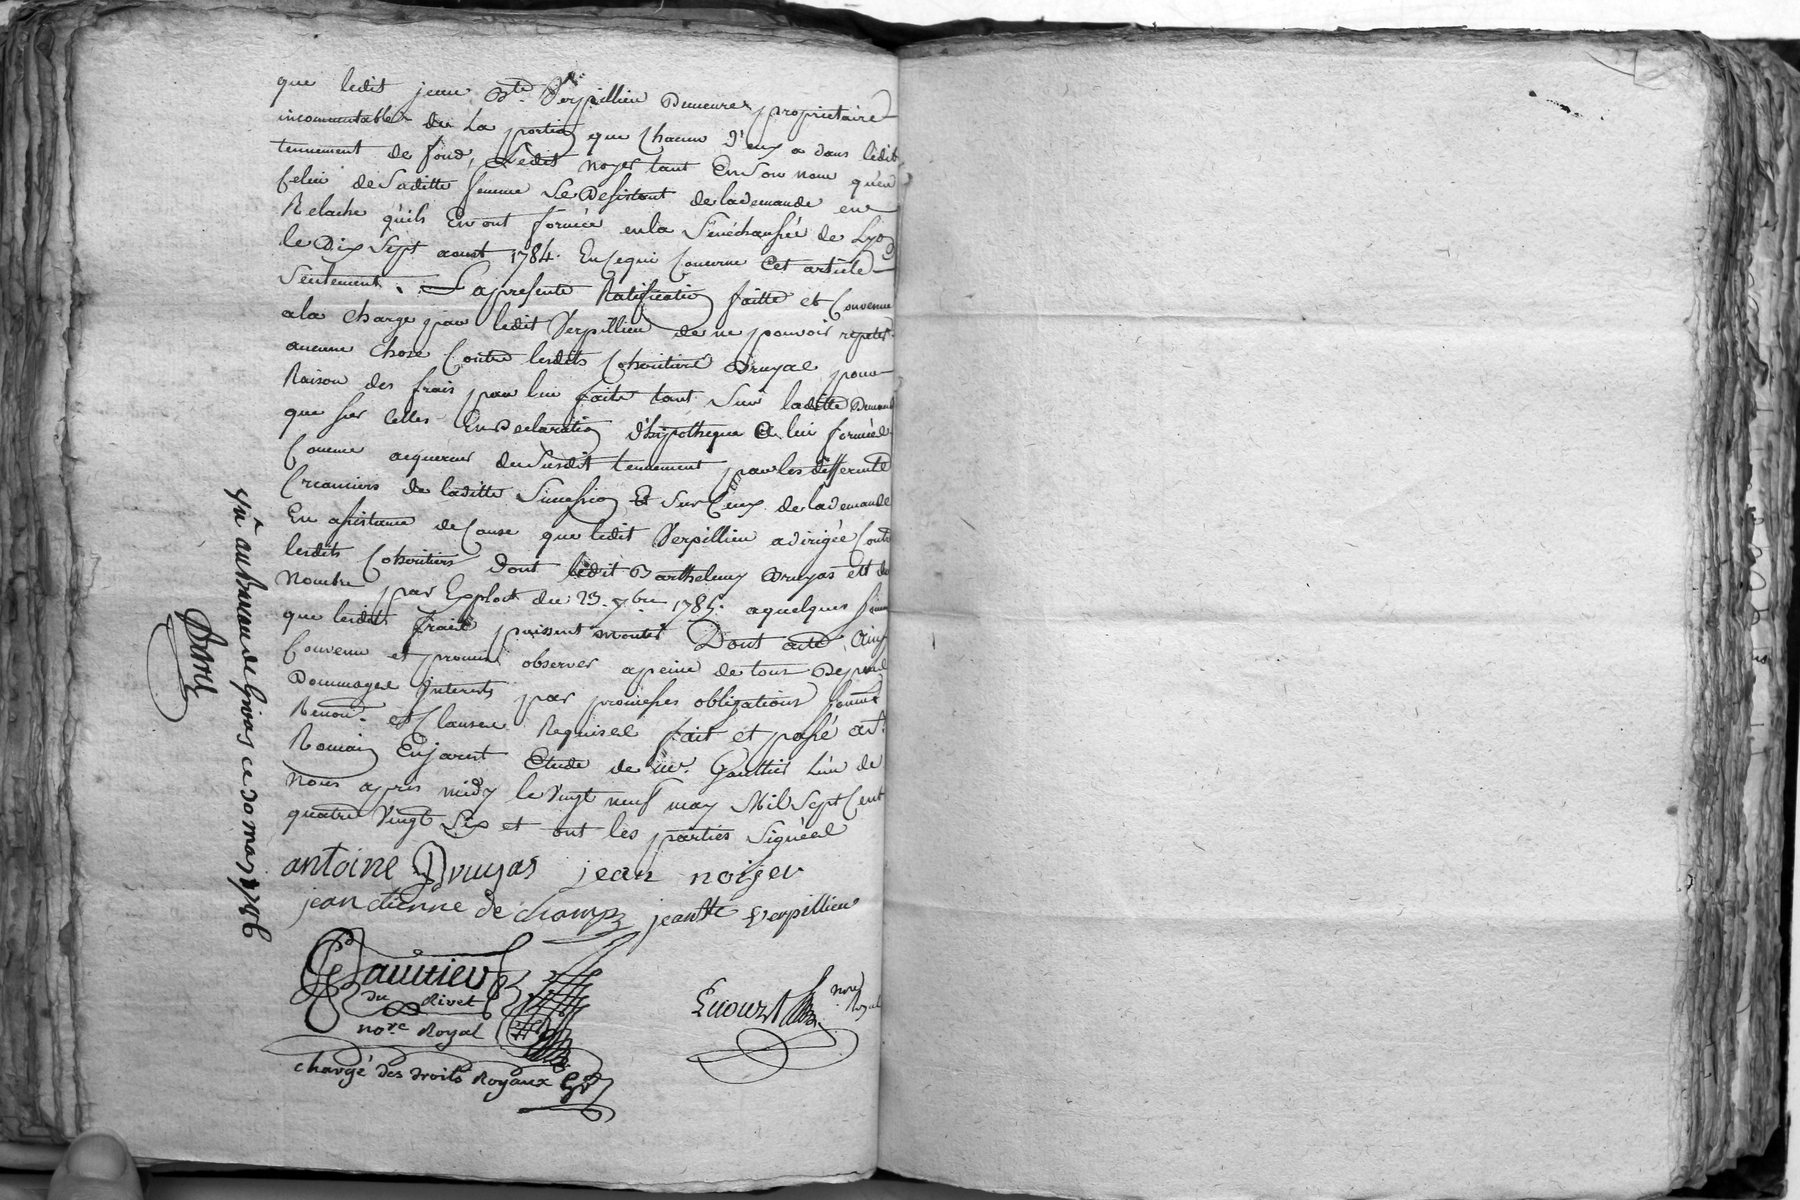 que ledit jean Bte Verpillieu Demeure propriétaire
incommutable de La portion que Chacun d'eux a dans ledit
tennement de fond, Ledit noyer tant En Son nom qu'en
Celui de Saditte femme Se Desistant de la demande en
Relache qu'ils En ont formée en la Sénéchaussée de Lyon
le Dix Sept aoust 1784. En Ce qui Concerne Cet article
Seulement. La presente Ratification faitte et Convenue
a la charge par ledit Verpillieu de ne pouvoir repeter
aucune chose Contre lesdits Cohéritiers Druyas pour
Raison des frais par lui faits tant Sur laditte Demande
que sur Celles En Declaration d'hipotheque a lui formées
Comme acquereur du Susdit tennement par les differents
Créanciers de laditte Succession Et Sur Ceux de la demande
En assistance de Cause que ledit Verpillieu a dirigée Contre
lesdits Cohéritiers Dont ledit Barthelemy Druyas est du
Nombre par Exploit du 23. 7bre 1785. a quelques
que lesdits frais puissent monter Dont acte Ainsy
Convenu et promis observer a peine de tous Depens
Dommages Interets par promesses obligations
Renon. et Clauses Requises fait et passé a St.
Romain En jarest Etude de Me. Gauttier L'un de
Nous apres midy le Vingt neuf may Mil Sept Cent
quatre Vingt Six et ont les parties Signées
antoine Druyas jean noiyer
jean étienne de champ jean Bte Verpillieu
Gauttier
du Rivet
nore Royal
chargé des droits Royaux
nore Royal
Vû au Bureau de Givors ce 30 may 1786